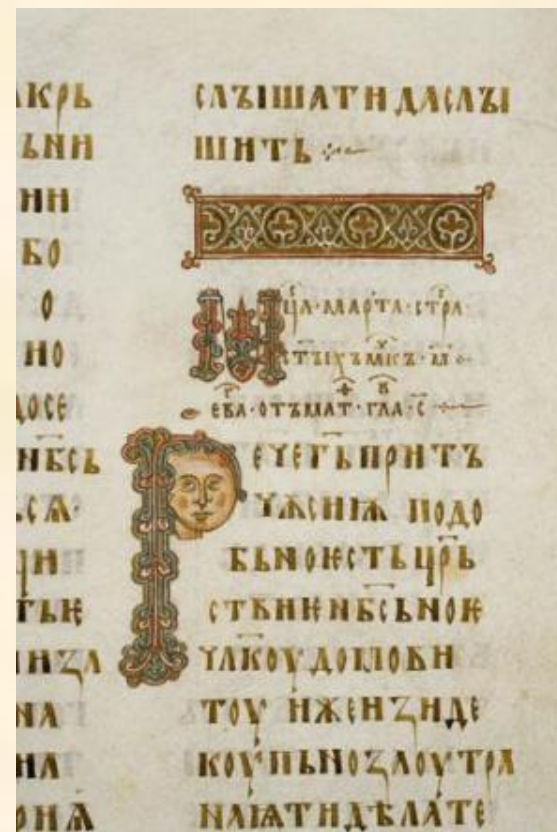 АКРЬ
ЬНИ
НИ
БО
О
НО
ДОСЕ
НБСЬ
ЬСѦ·
ЦИ
ТЬѤ
НЗА
NA
НА
ОНѦ
СЛЪІШАТИ ДАСЛЪІ
ШИТЬ
МЦА· МАРТА· СТРА·
СТЪІХЪ М҃К Ъ· М҃·
ЕВА· ОТЪ МАТ· ГЛА· С
РЕЧЕ ГЬ ПРИТЪ
ЧѪ СИѬ ПОДО
БЬNО ѤСТЬ ЦРЬ
СТВИѤ NБСЬNОѤ
ЧЛКОУ ДОМОВИ
ТОУ ИЖЕ ИЗИДЕ
КОУПЬNО ЗАОУТРА
NАѨТИ ДѢЛАТЕ